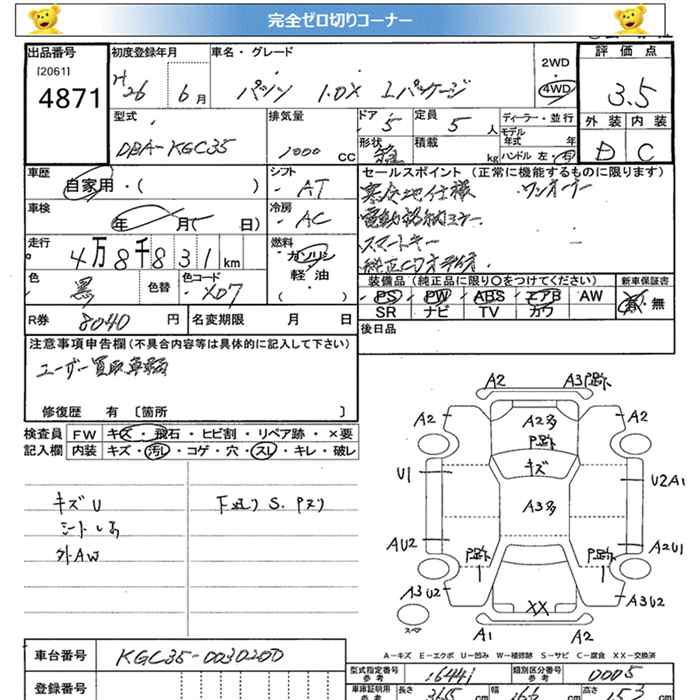 完全ゼロ切りコーナー
出品番号
[2061]
4871
初度登録年月
H26 6月
車名・グレード
パッソ 1.0X Lパッケージ
2WD
・
4WD
評価点
3.5
外装 内装
D C
型式
DBA-KGC35
排気量
1000 CC
ドア
5
定員
5 人
形状
積載
kg
ディーラー・並行
モデル年式 年
ハンドル 左・右
車歴
自家用・( )
シフト
AT
セールスポイント (正常に機能するものに限ります)
寒冷地仕様 ワンオーナー
電動格納ミラー
スマートキー
車検
年 月( 日)
冷房
AC
走行
4万8千831km
燃料
ガソリン
軽・油
( )
色
黒
色替
色コード
X07
装備品 (純正品に限り○をつけてください)
PS PW ABS エアB AW
SR ナビ TV カワ
新車保証書
有・無
R券 8040 円
名変期限 月 日
後日品
注意事項申告欄(不具合内容等は具体的に記入して下さい)
ユーザー買取車輌
修復歴 有 〔箇所 〕
検査員記入欄
FW キズ・飛石・ヒビ割・リペア跡・×要
内装 キズ・汚し・コゲ・穴・スレ・キレ・破レ
キズU
外AW
A2 A3 P跡
A2 A2多 A2
P跡
キズ
U1 U2A1
A3多
AU2 P跡 P跡 A2U1
A3U2 A3U2
XX
スペア
A1 A2
A-キズ E-エクボ U-凹み W-補修跡 S-サビ C-腐食 XX-交換済
車台番号 KGC35-0030200
登録番号
型式指定番号 参考 16441
類別区分番号 参考 0005
車庫証明用 参考
長さ 365 cm
幅 166 cm
高さ 153 cm